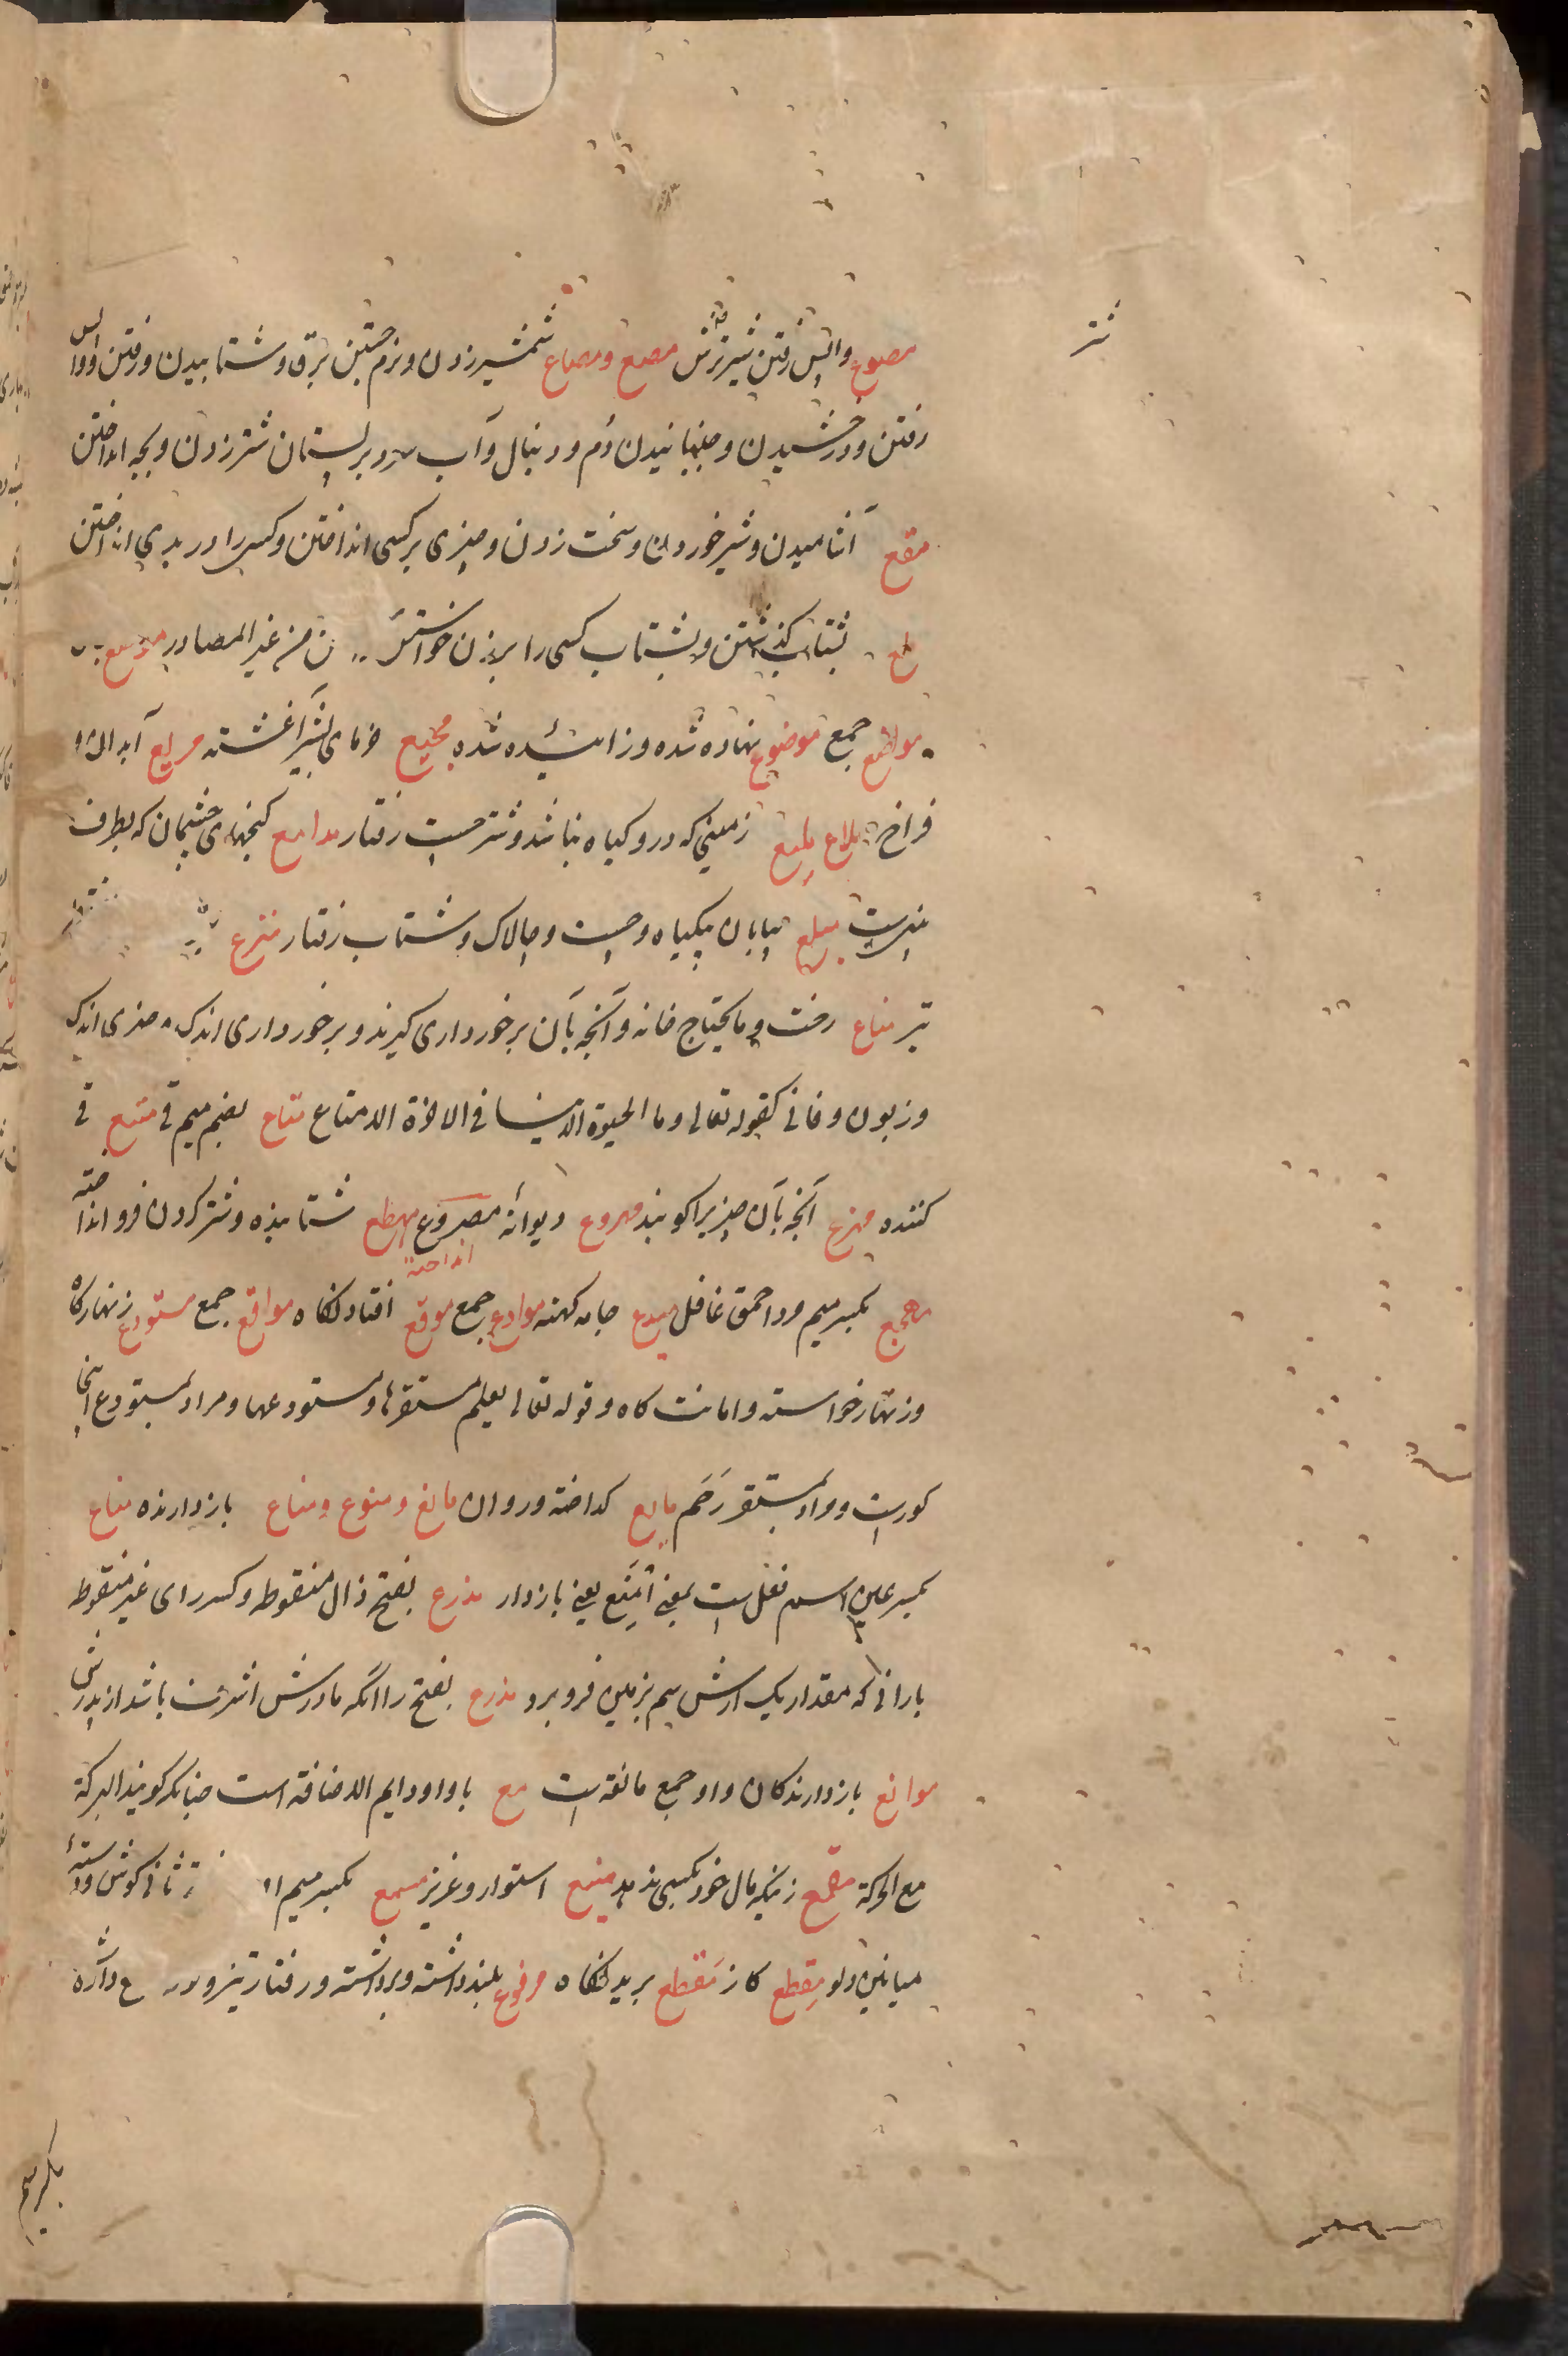 مصوع واپس رفتن شیر ترش مصع ومصاع شمشیر زدن ونرم جستن برق وشتابیدن ورفتن وواپس
رفتن ودرخشیدن وجنبانیدن دم ودنبال وآب سرد بر پستان شتر زدن وبچه انداختن
مقع آشامیدن وشیر خوردن وسخت زدن وچیزی بر کسی انداختن وکسی را در بدی انداختن
ملع بشتاب گذشتن وبشتاب کسی را بر زدن خواستن من غیر المصادر موضع
مواضع جمع موضوع نهاده شده وزائیده شده مجیع خرمای بشیر آغشته مریع آبدان
فراخ بلاع ملیع زمینی که درو کیاه نباشد وشتر چست رفتار مدامع کنجهای چشمان که بطرف
بینیست میلع بیابان بیکیاه وچست وچالاک وشتاب رفتار منزع
تیر متاع رخت وما یحتاج خانه وآنچه بآن برخورداری کیرند وبرخورداری اندک وچیزی اندک
وزبون وفانی کقوله تعالی وما الحیوة الدنیا فی الاخرة الا متاع متاع بضم میم قی متیع قی
کننده مهزع آنچه بآن چیزیرا کوبند مهروع دیوانه مصروع مهطع شتابنده وشتر کردن فرو انداخته
انداخته
مهجع بکسر میم مرد احمق غافل میدع جامه کهنه موادع جمع موقع افتادنگاه مواقع جمع مستودع زنهارگاه
وزنهار خواسته وامانت گاه وقوله تعالی یعلم مستقرها ومستودعها ومراد بمستودع اینجا
کورست ومراد بمستقر رحم مایع کداخته وروان مانع ومنوع ومناع بازدارنده مناع
بکسر عین اسم فعل است بمعنی امنع یعنی بازدار مذرع بفتح ذال منقوطه وکسر رای غیر منقوطه
بارانی که مقدار یک ارش نم بزمین فرو برد مذرع بفتح را انکه مادرش اشرف باشد از پدرش
موانع بازدارندکان واو جمع مانعه است مع باواو دایم الاضافه است چنانکه کویند البرکة
مع الحرکة مقمع زنیکه مال خود بکسی ندهد منیع استوار وعزیز مسمع بکسر میم ثانی کوش ودسته
میانین دلو مقطع کاز مقطع بریدنگاه مرفوع بلند داشته وبرداشته ورفتار تیز
بکسر میم